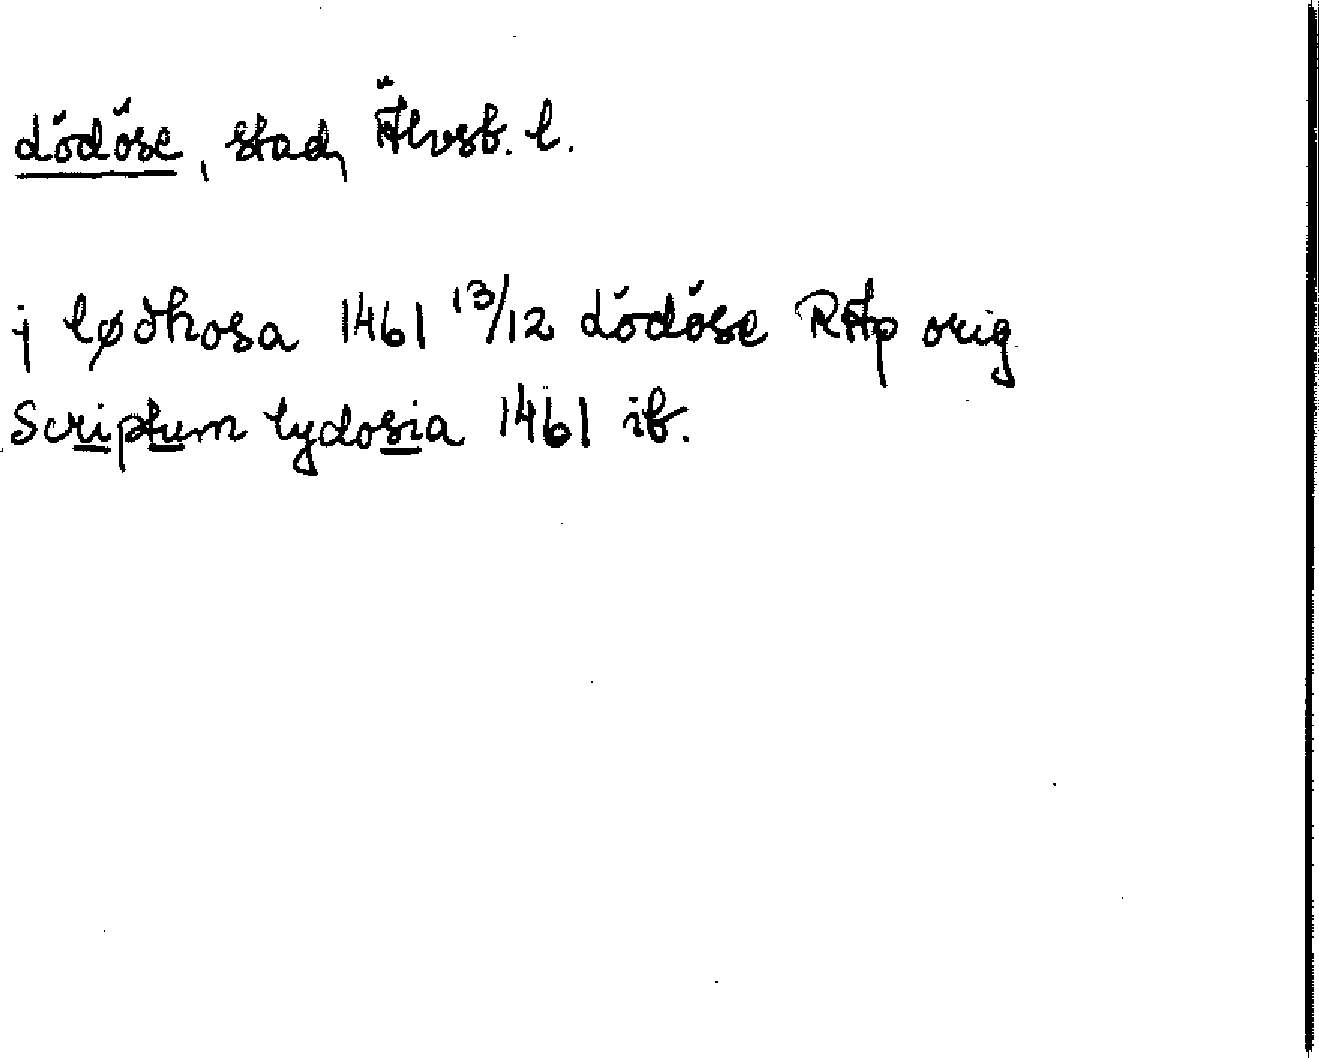 Lödöse, stad, Älvsb. l.
j løthosa 1461 13/12 Lödöse RAp orig
Scriptum lydosia 1461 ib.